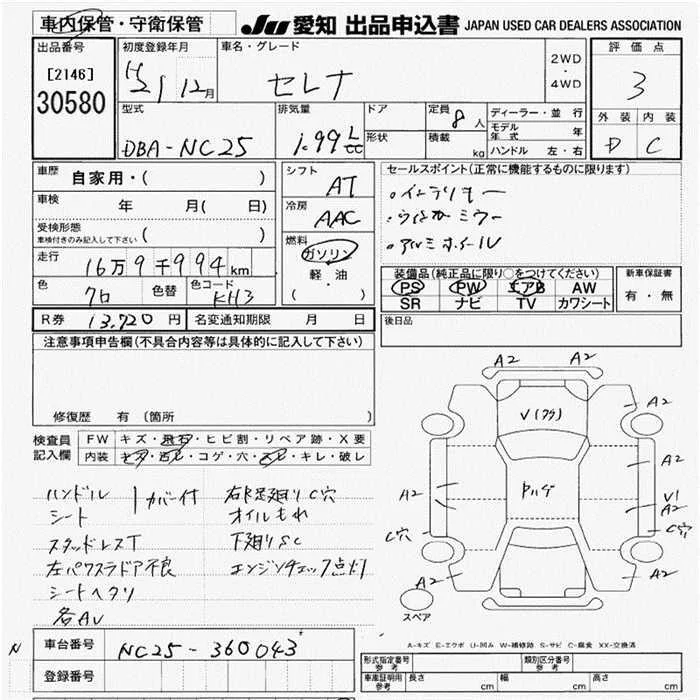 車内保管・守衛保管 JU 愛知 出品申込書 JAPAN USED CAR DEALERS ASSOCIATION
出品番号 初度登録年月 車名・グレード 2WD・4WD 評価点
[2146] 30580 H21 12月 セレナ 3
型式 排気量 ドア 定員 8人 ディーラー・並行 外装 内装
DBA-NC25 1.99 L cc 形状 積載 kg モデル年式 年 D C
ハンドル 左・右
車歴 自家用・( ) シフト AT セールスポイント(正常に機能するものに限ります)
車検 年 月( 日) 冷房 AAC ・インテリキー
受検形態 車検付きのみ記入して下さい ( ) ・ウインカーミラー
走行 16万9千994km 燃料 ガソリン ・アルミホイール
軽・油 ( )
色 クロ 色替 色コード KH3
装備品(純正品に限り○をつけてください) 新車保証書
PS PW エアB AW 有・無
SR ナビ TV カワシート
R券 13,720円 名変通知期限 月 日 後日品
注意事項申告欄(不具合内容等は具体的に記入して下さい)
修復歴 有 (箇所
検査員記入欄 FW キズ・飛石・ヒビ割・リペア跡・X要
内装 キズ・汚レ・コゲ・穴・スレ・キレ・破レ
ハンドル カバー付 右下廻りC穴
シート オイルもれ
スタッドレスT 下廻りSC
左パワスラドア不良 エンジンチェック点灯
シートヘタリ
各AU
A2 A2
A2 A2
V(フク)
A2
A2 Pハゲ V1
A2
C穴 C穴
A2 A2
スペア
A-キズ E-エクボ U-凹み W-補修跡 S-サビ C-腐食 XX-交換済
N 車台番号 NC25-360043
登録番号
形式指定番号 参考 類別区分番号 参考
車庫証明用 参考 長さ cm 幅 cm 高さ cm